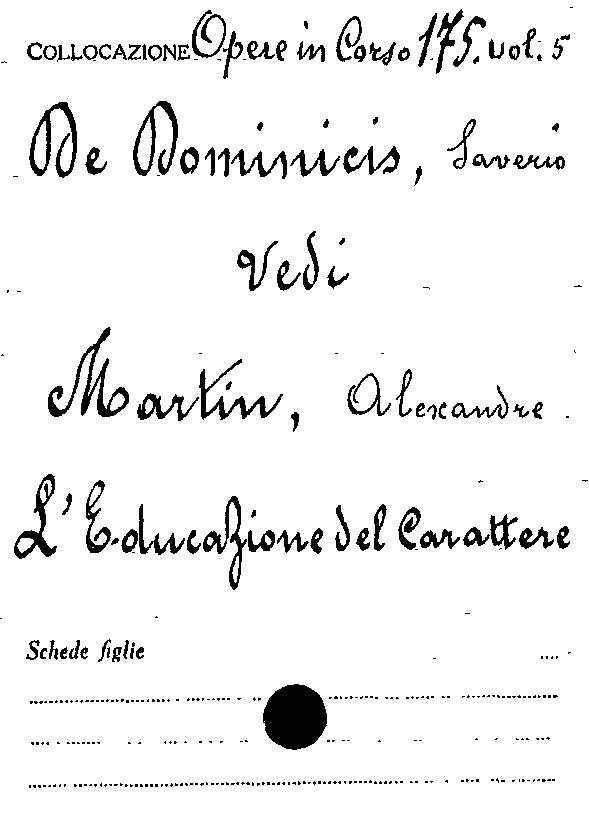 COLLOCAZIONE Opere in Corso 175. vol. 5
De Dominicis, Saverio
Vedi
Martin, Alexandre.
L'Educazione del Carattere
Schede figlie